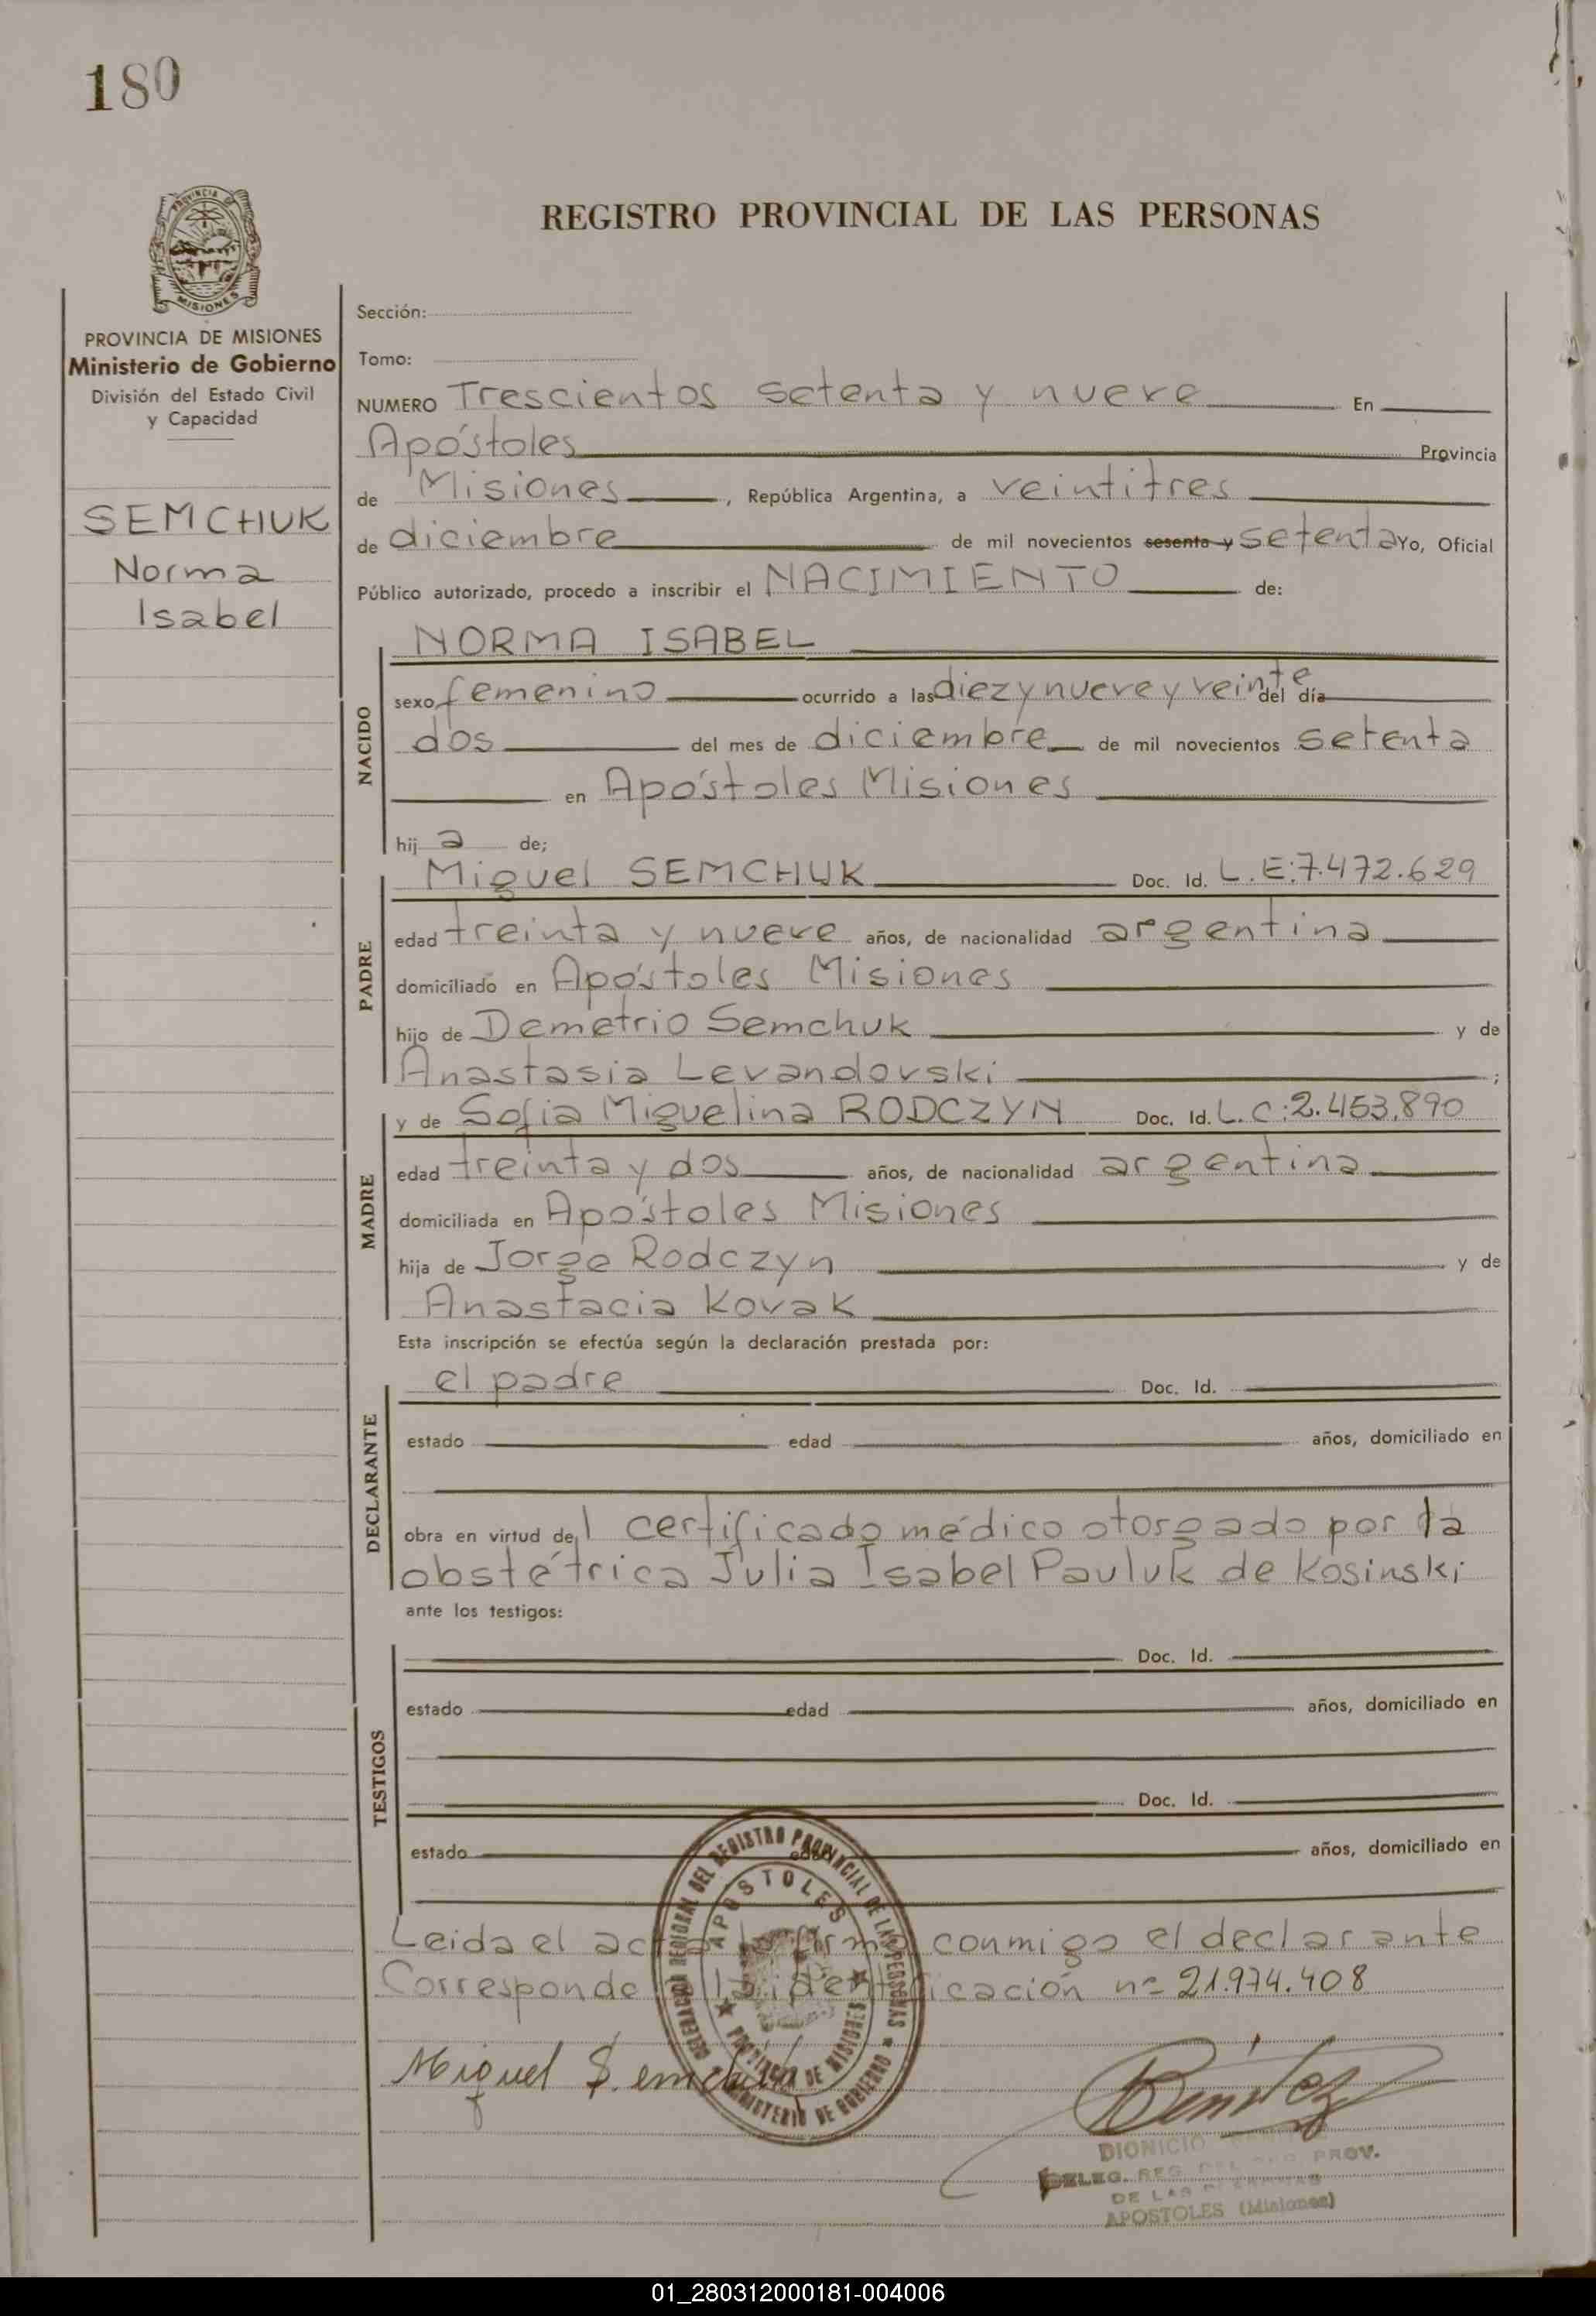 180
PROVINCIA DE
MISIONES
PROVINCIA DE MISIONES
Ministerio de Gobierno
División del Estado Civil
y Capacidad
SEMCHUK
Norma
Isabel
REGISTRO PROVINCIAL DE LAS PERSONAS
Sección:
Tomo:
NUMERO Trescientos setenta y nueve En
Apóstoles Provincia
de Misiones, República Argentina, a veintitres
de diciembre de mil novecientos sesenta y setenta Yo, Oficial
Público autorizado, procedo a inscribir el NACIMIENTO de:
NACIDO
NORMA ISABEL
sexo femenino ocurrido a las diez y nueve y veinte del día
dos del mes de diciembre de mil novecientos setenta
en Apóstoles Misiones
hij a de;
PADRE
Miguel SEMCHUK Doc. Id. L.E:7.472.629
edad treinta y nueve años, de nacionalidad argentina
domiciliado en Apóstoles Misiones
hijo de Demetrio Semchuk y de
Anastasia Levandovski ;
MADRE
y de Sofia Miguelina RODCZYN Doc. Id. L.C:2.453.890
edad treinta y dos años, de nacionalidad argentina
domiciliada en Apóstoles Misiones
hija de Jorge Rodczyn y de
Anastacia Kovak
Esta inscripción se efectúa según la declaración prestada por:
DECLARANTE
el padre Doc. Id.
estado edad años, domiciliado en
obra en virtud del certificado médico otorgado por la
obstétrica Julia Isabel Pauluk de Kosinski
ante los testigos:
TESTIGOS
Doc. Id.
estado edad años, domiciliado en
Doc. Id.
estado edad años, domiciliado en
Leida el acta la firma conmigo el declarante
Corresponde a la identificación nº 21.974.408
DELEGACION REGIONAL DEL REGISTRO PROVINCIAL DE LAS PERSONAS
APOSTOLES
PROVINCIA DE MISIONES
MINISTERIO DE GOBIERNO
Miguel Semchuk
Benitez
DIONICIO
DELEG. REG. DEL PROV.
DE LAS PERSONAS
APOSTOLES (Misiones)
01_280312000181-004006